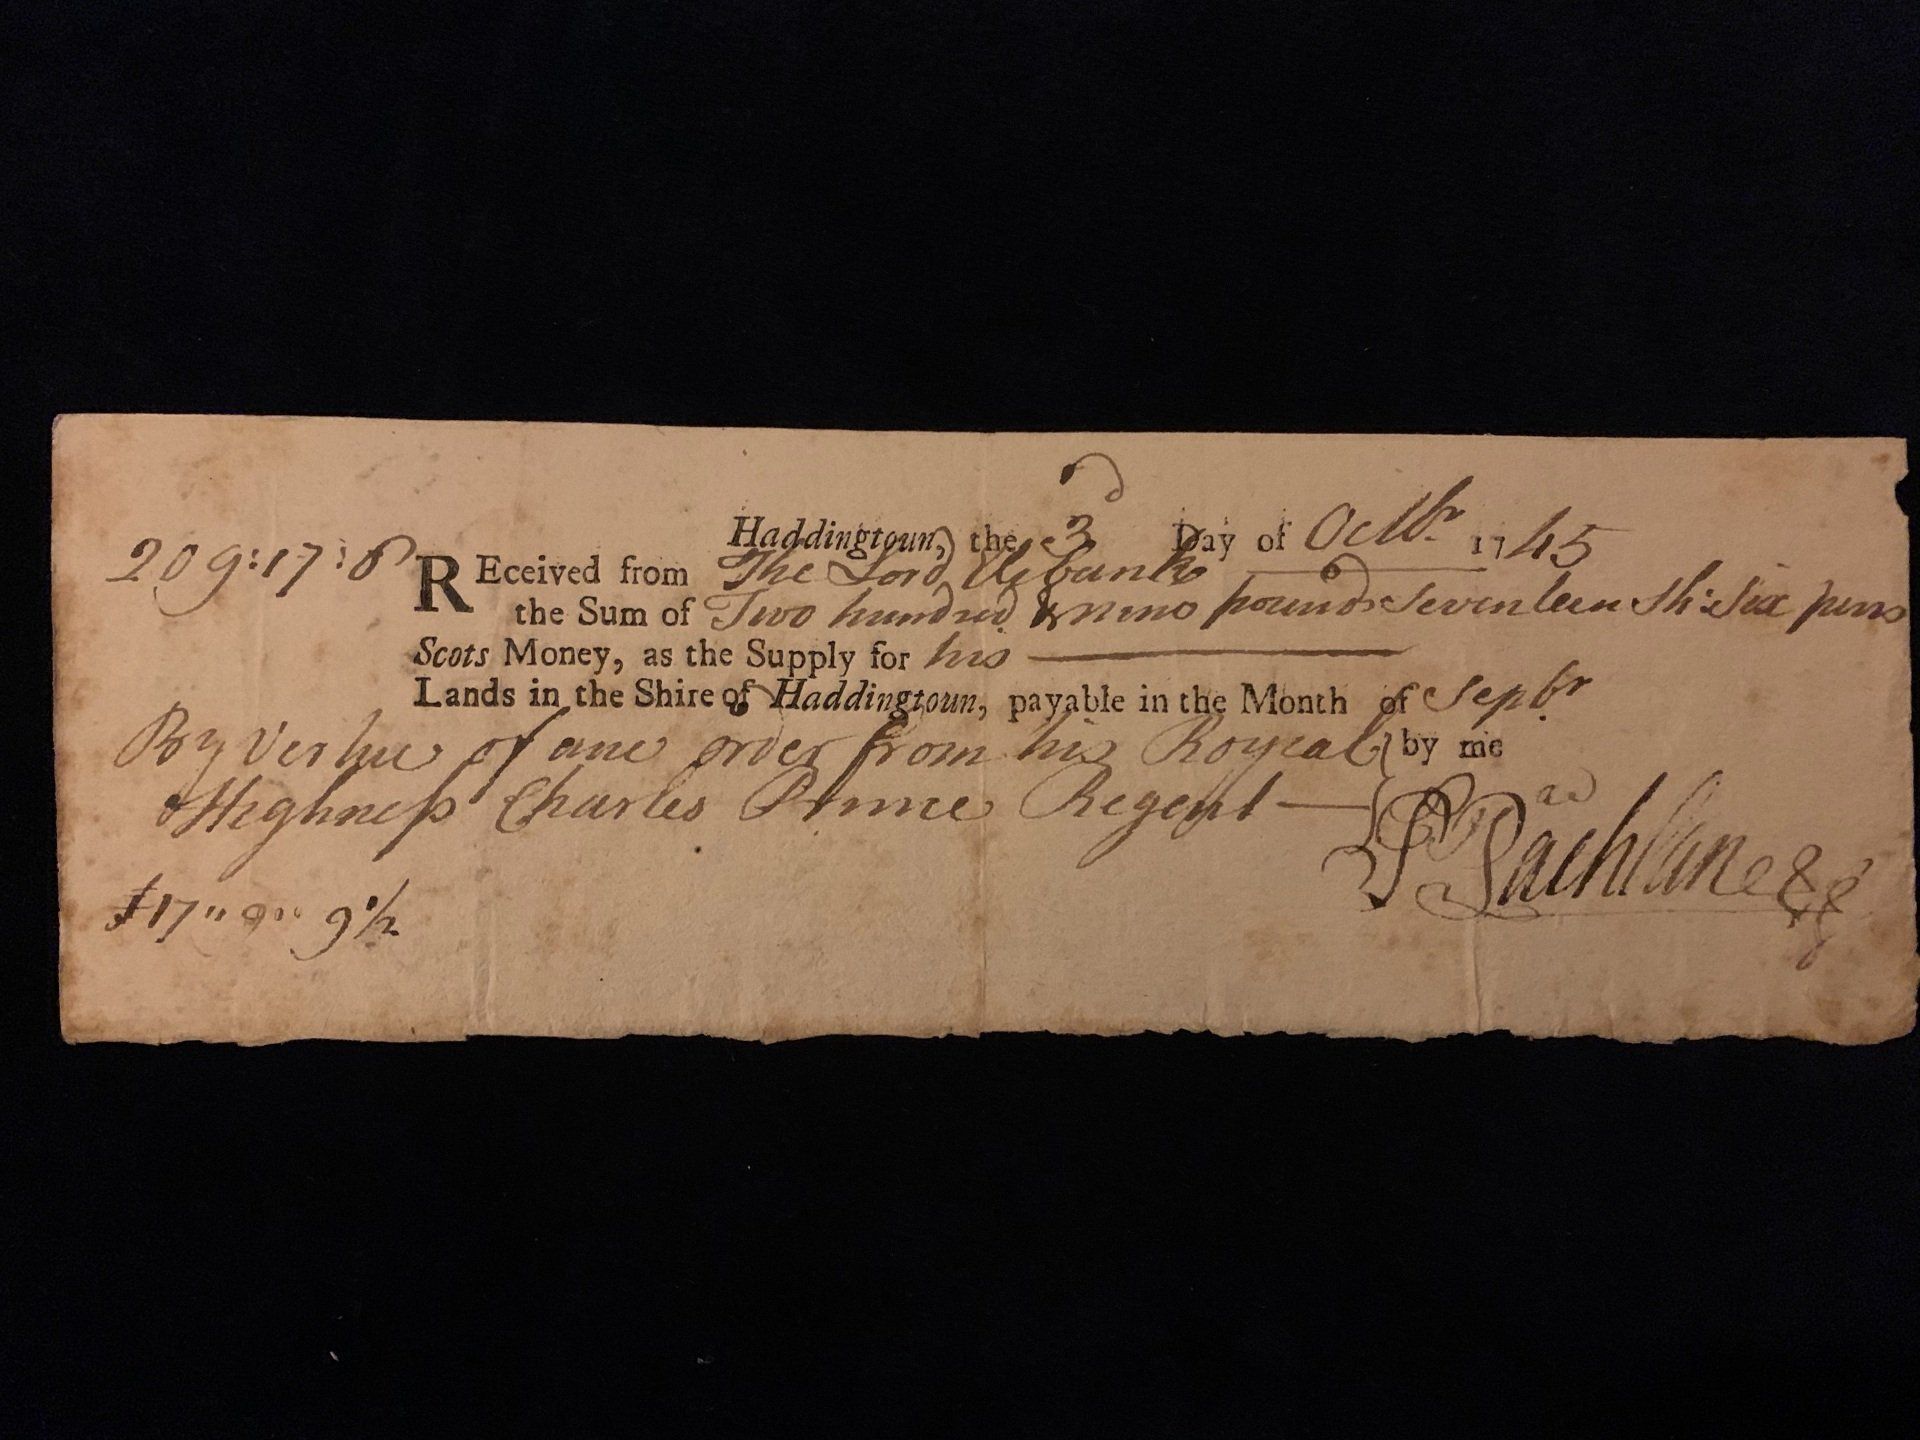 Haddingtoun, the 3d Day of Octbr 1745
209:17:6 REceived from The Lord Elibank
the Sum of Two hundred & nine pounds Seventeen sh: Six penns
Scots Money, as the Supply for his
Lands in the Shire of Haddingtoun, payable in the Month of Sepbr
By Vertue of ane order from his Royeal by me
Highness Charles Prince Regent
Lachlane
£17 " 9 " 9 1/2